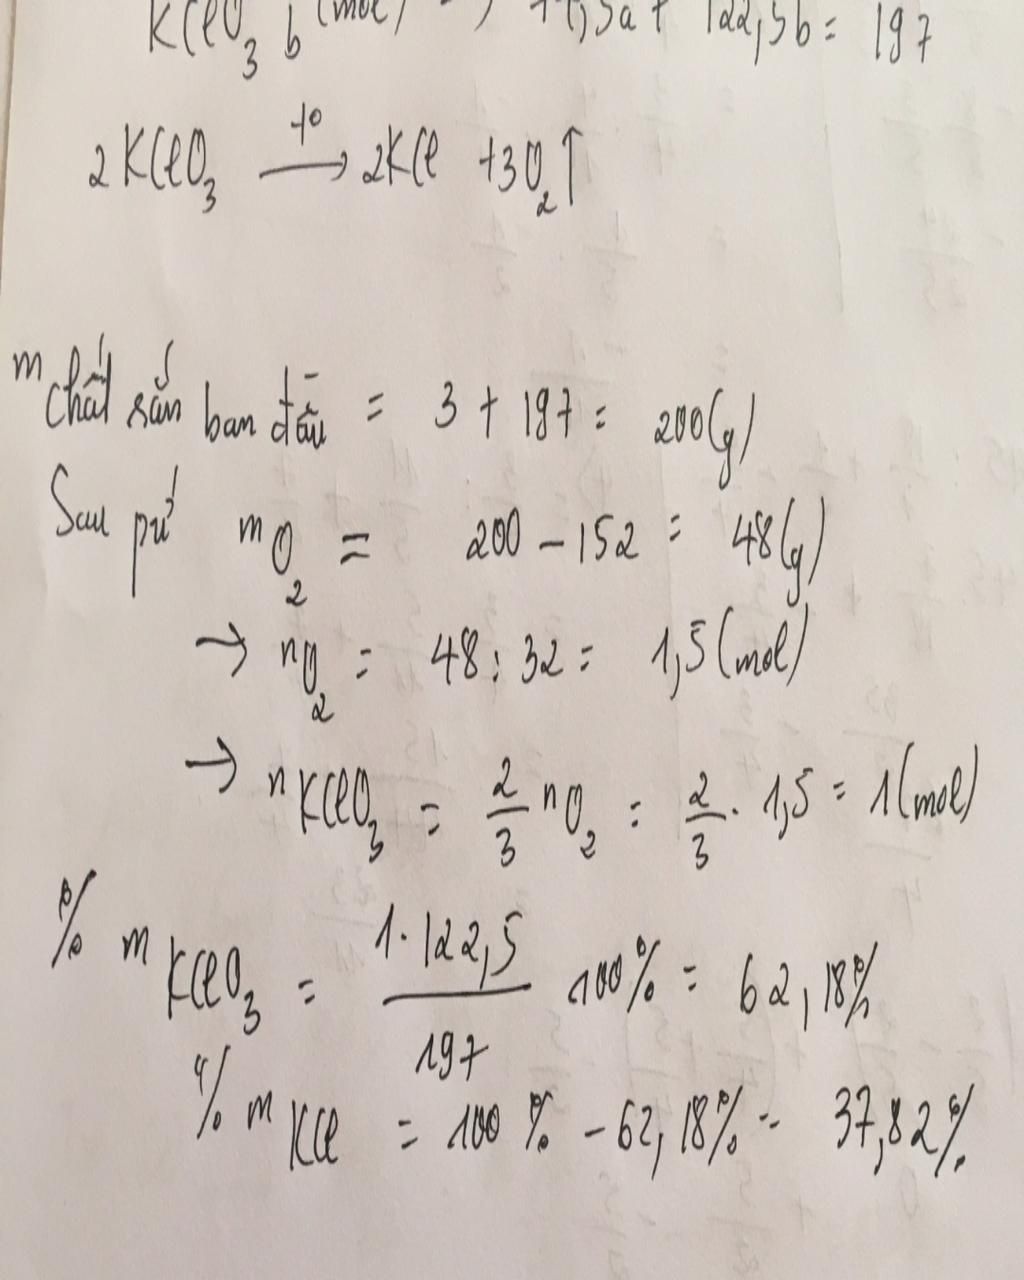 KClO₃ b (mol) → 74,5a + 122,5b = 197
2KClO₃ —t°→ 2KCl + 3O₂↑
m chất rắn ban đầu = 3 + 197 = 200(g)
Sau pứ m O₂ = 200 - 152 = 48(g)
→ nO₂ = 48 : 32 = 1,5 (mol)
→ nKClO₃ = 2/3 nO₂ = 2/3 . 1,5 = 1 (mol)
% m KClO₃ = 1.122,5/197 100% = 62,18%
% m KCl = 100% - 62,18% = 37,82%.